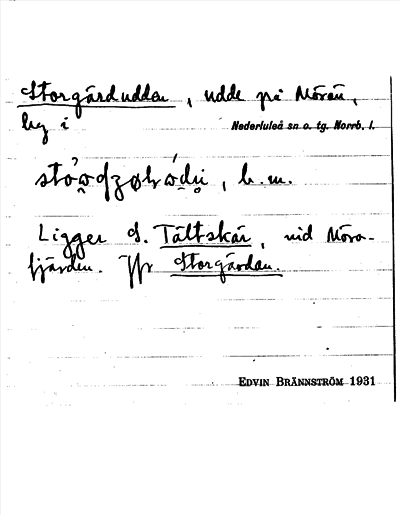 Storgårdudden, udde på Mörön,
by i Nederluleå sn o. tg. Norrb. l.
, b. m.
Ligger S. Tältskär, vid Möro-
fjärden. Jfr Storgården.
EDVIN BRÄNNSTRÖM 1931